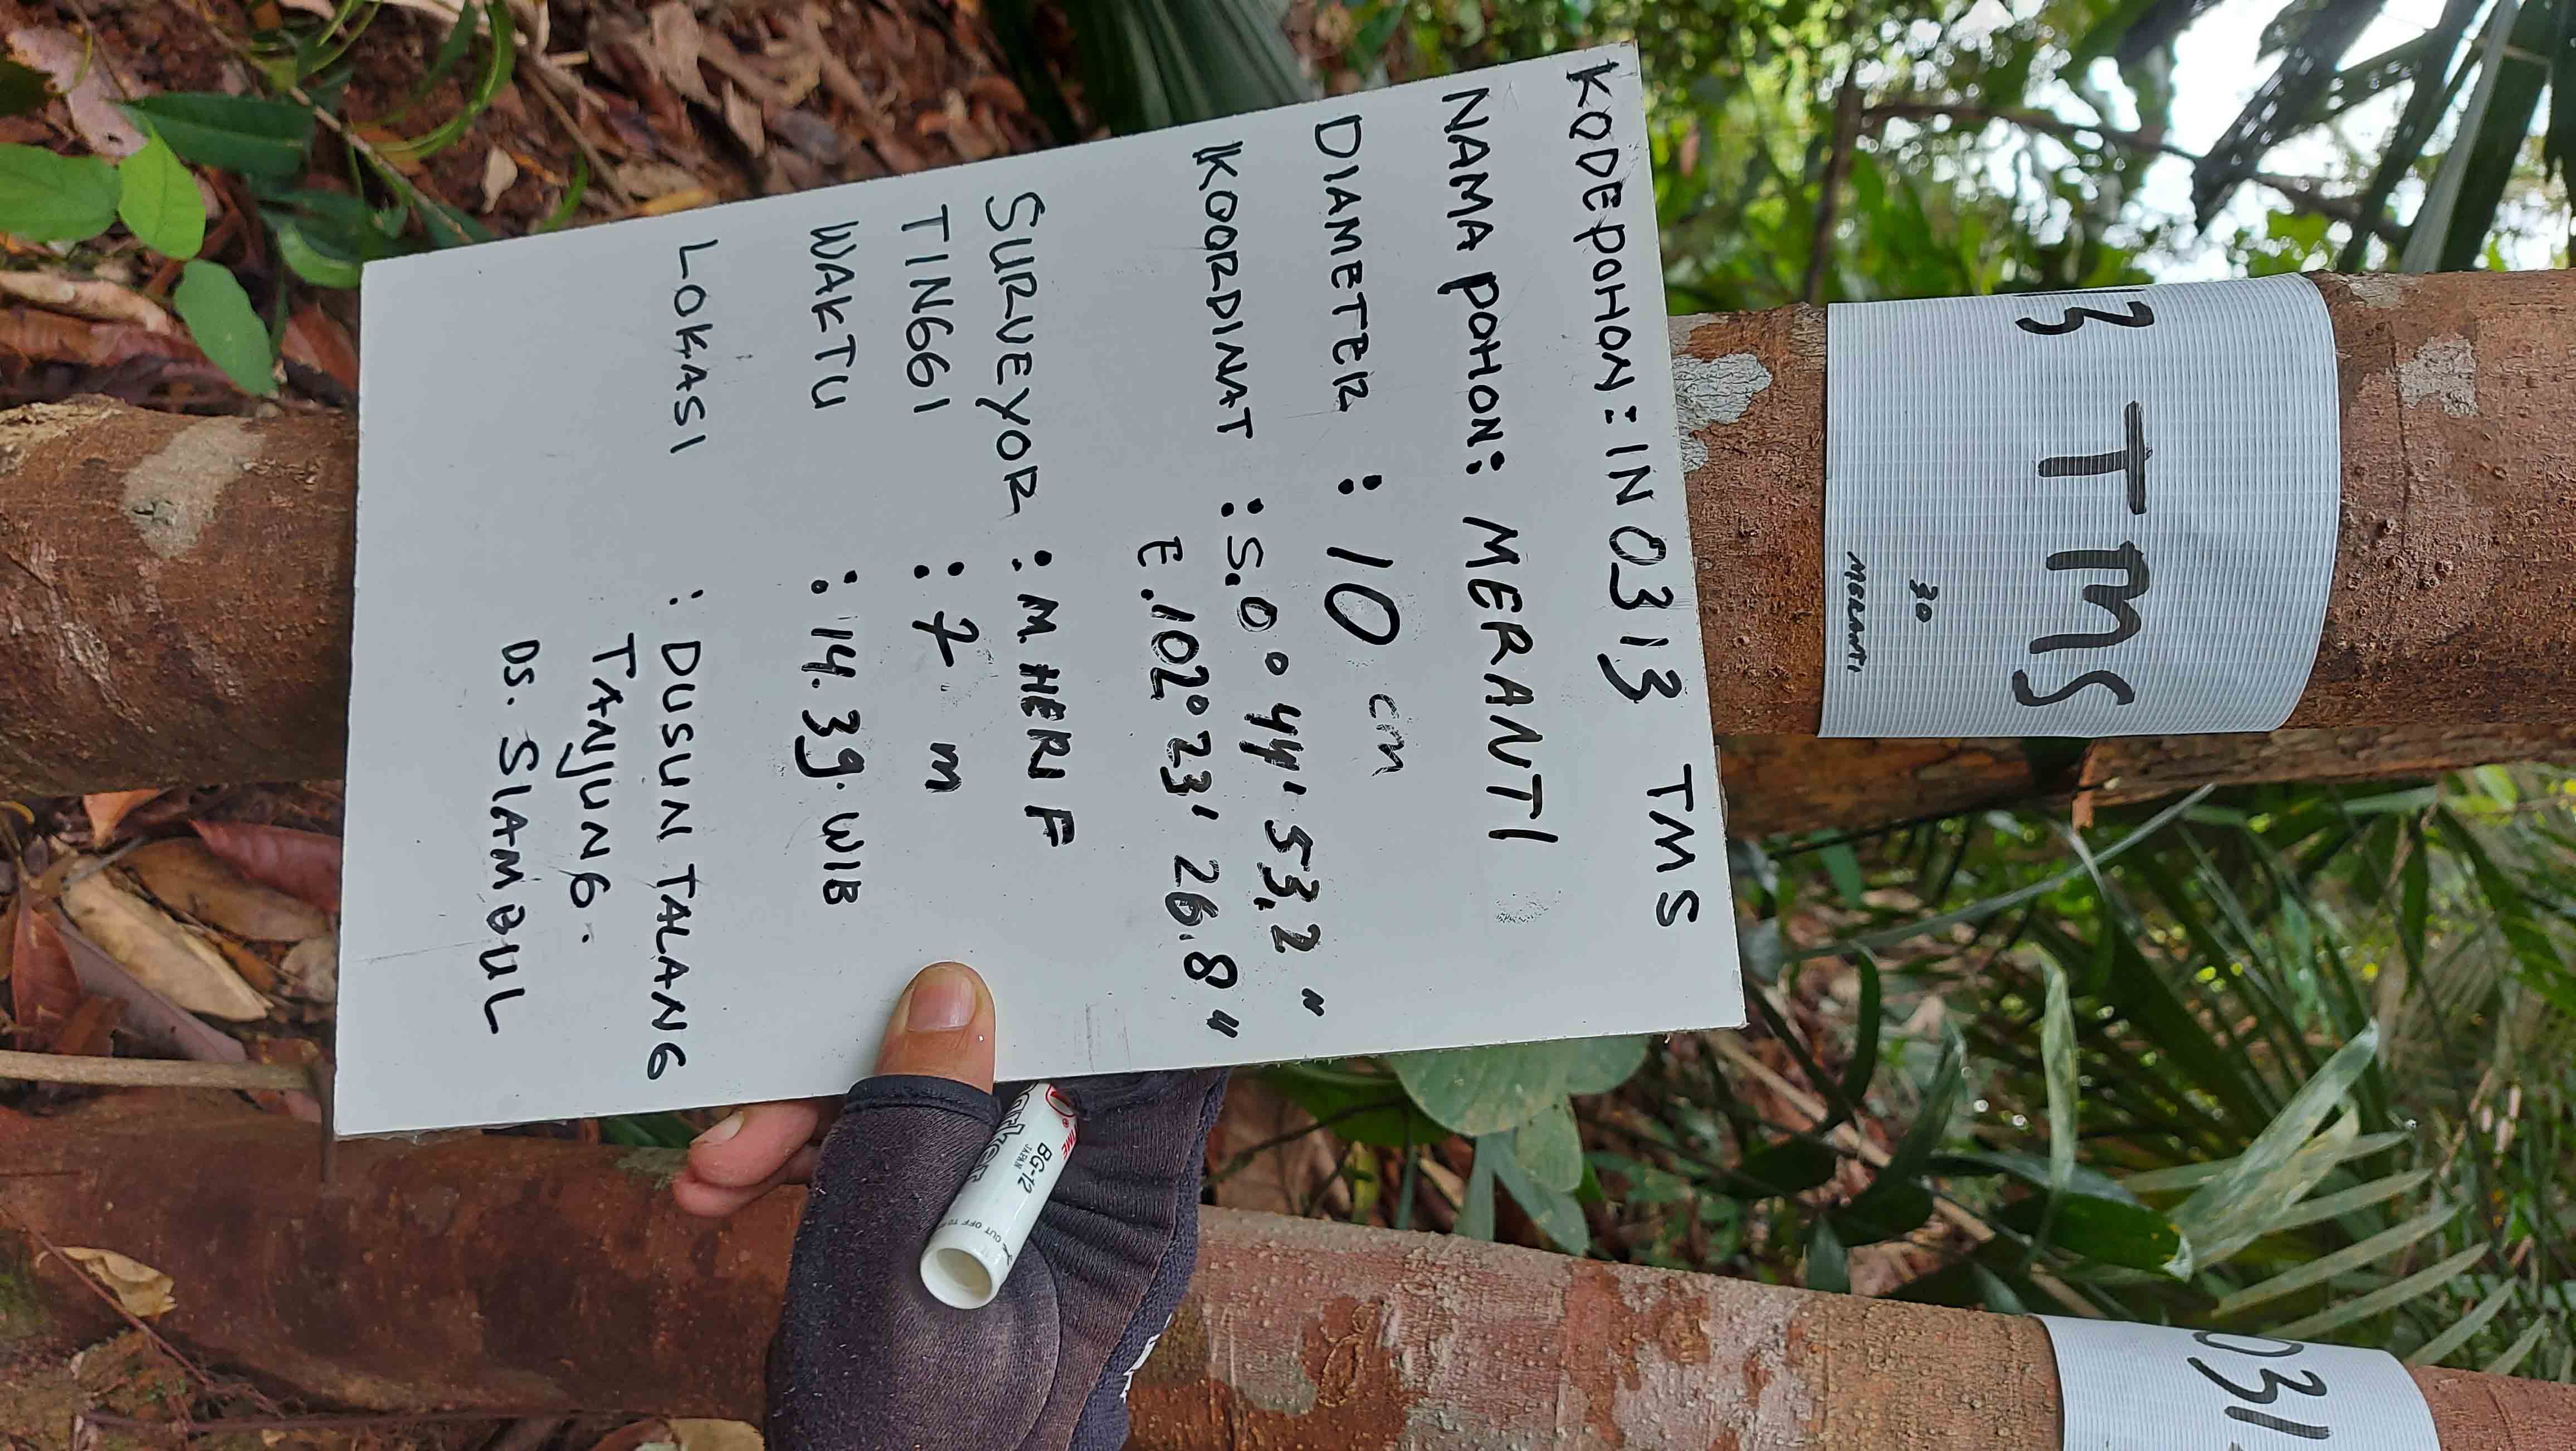 13 TMS
30
MERANTI
031
KODE POHON : IN 0313 TMS
NAMA POHON : MERANTI
DIAMETER : 10 cm
KOORDINAT : S.0° 44' 53,2"
E.102° 23' 26.8"
SURVEYOR : M. HERI F
TINGGI : 7 m
WAKTU : 14.39. WIB
LOKASI : DUSUN TALANG
TANJUNG.
DS. SIAMBUL
BG-12
JAPAN
CUT OFF